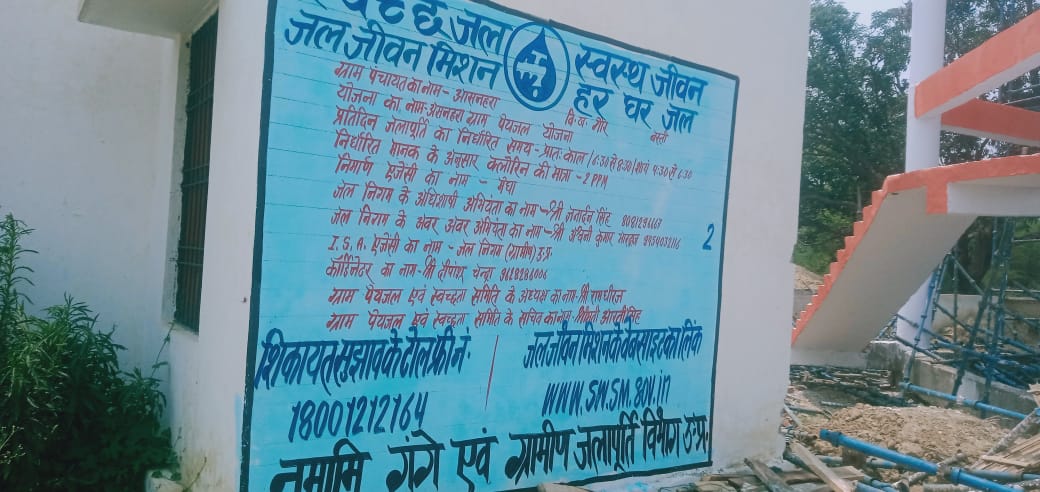 स्वच्छ जल स्वस्थ जीवन
जल जीवन मिशन हर घर जल
ग्राम पंचायत का नाम - आसनहरा वि.ख. गौर बस्ती
योजना का नाम - असनहरा ग्राम पेयजल योजना
प्रतिदिन जलापूर्ति का निर्धारित समय - प्रातः काल / 6:30 से 8:30 / सायं 4:30 से 6:30
निर्धारित मानक के अनुसार क्लोरिन की मात्रा - 2 PPM
निर्माण एजेंसी का नाम - मेघा
जल निगम के अधिशाषी अभियंता का नाम - श्री जनार्दन सिंह
जल निगम के अवर अभियंता का नाम - श्री अश्वनी कुमार
2
I.S.A. एजेंसी का नाम - जल निगम (ग्रामीण) उ.प्र.
कॉर्डिनेटर का नाम - श्री दीपांशु चन्द्रा
ग्राम पेयजल एवं स्वच्छता समिति के अध्यक्ष का नाम - श्री रामधीरज
ग्राम पेयजल एवं स्वच्छता समिति के सचिव का नाम - श्रीमती आरती सिंह
शिकायत सुझाव के टोल फ्री नं.
18001212164
जल जीवन मिशन के वेबसाइट का लिंक
WWW.SWSM.GOV.in
नमामि गंगे एवं ग्रामीण जलापूर्ति विभाग उ.प्र.